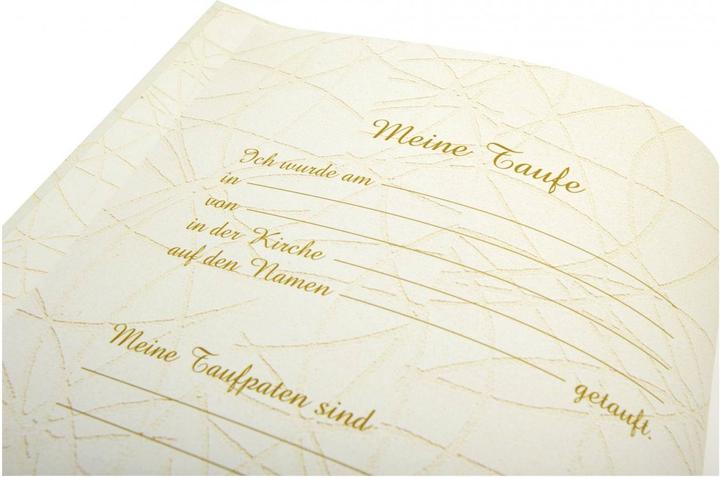 Meine Taufe
Ich wurde am
in
von
in der Kirche
auf den Namen
getauft.
Meine Taufpaten sind